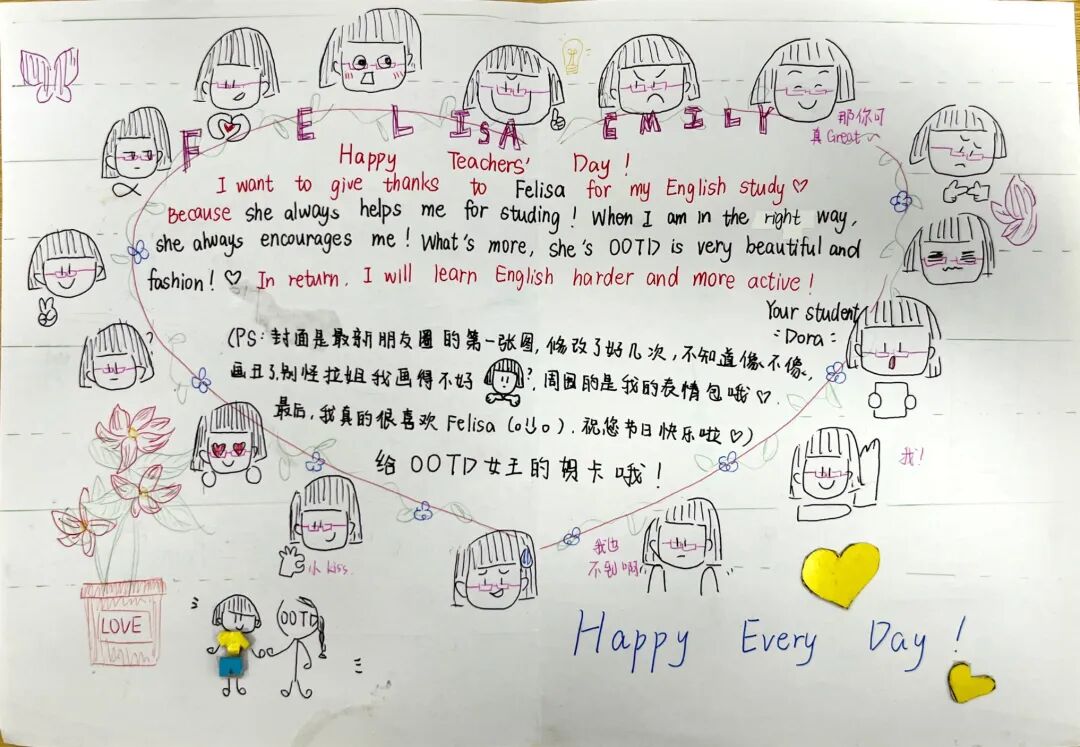 FELISA EMILY
那你可
真Great~
Happy Teachers' Day!
I want to give thanks to Felisa for my English study♡
Because she always helps me for studing! When I am in the right way,
she always encourages me! What's more, she's OOTD is very beautiful and
fashion!♡ In return. I will learn English harder and more active!
Your student
Dora
(PS:封面是最新朋友圈的第一张图,修改了好几次,不知道像不像,
画丑了别怪拉姐我画得不好?,周围的是我的表情包哦♡.
最后,我真的很喜欢Felisa(o).祝您节日快乐啦♡)
给OOTD女王的贺卡哦!
我!
小kiss.
我也
不知啊
LOVE
OOTD
Happy Every Day!